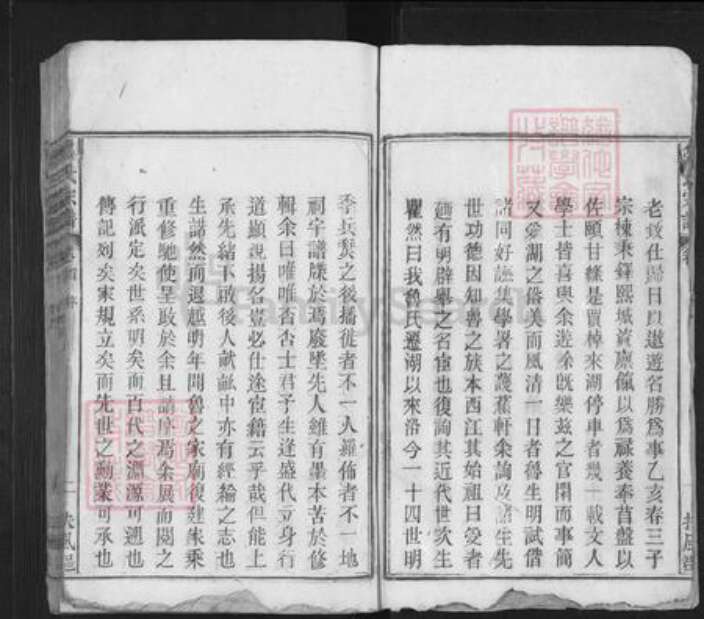 老致仕歸日以遨遊名勝爲事乙亥春三子
宗棟秉鐸熙城資廩餼以爲祿養奉苜盤以
佐頤甘繇是買棹來湖停車者幾一載文人
學士皆喜與余遊余旣樂茲之官閒而事簡
又愛湖之俗美而風清一日者魯生明試偕
諸同好讌集學署之蔑蕉軒余詢及諸生先
世功德因知魯之族本西江其始祖曰愛者
廼有明辟舉之名宦也復詢其近代世次生
瞿然曰我魯氏遷湖以來洛今一十四世明
季兵燹之後播徙者不一人羅佈者不一地
祠宇譜牒於焉廢墜先人雖有墨本苦於修
輯余曰唯唯否否士君子生逢盛代立身行
道顯親揚名豈必仕途宦籍云乎哉但能上
承先緒下啟後人畎畝中亦有經綸之志也
生諾然而退越明年聞魯之家廟復建朱乘
重修馳使呈政於余且請序焉余展而閱之
行派定矣世系明矣而百代之淵源可遡也
傳記列矣家規立矣而先世之勳業可承也
氏宗譜
二 扶風邑